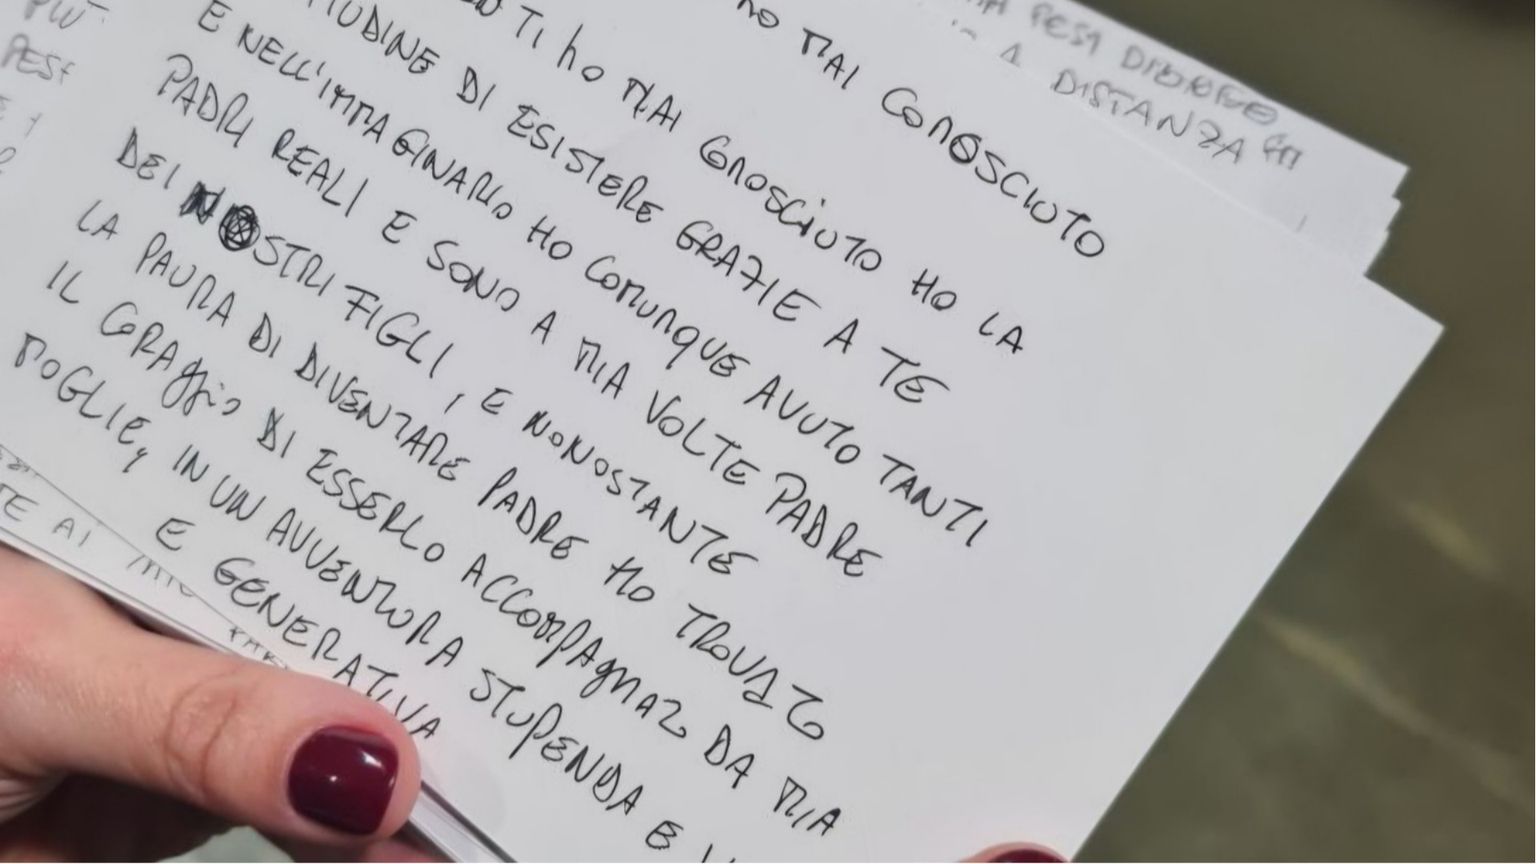 PESI
A DISTANZA
PIU'
MAI CONOSCIUTO
TI HO MAI CONOSCIUTO HO LA
DI ESISTERE GRAZIE A TE
E NELL'IMMAGINARIO HO COMUNQUE AVUTO TANTI
PADRI REALI E SONO A MIA VOLTE PADRE
DEI NOSTRI FIGLI, E NONOSTANTE
LA PAURA DI DIVENTARE PADRE HO TROVATO
IL CORAGGIO DI ESSERLO ACCOMPAGNATO DA MIA
MOGLIE, IN UN AVVENTURA STUPENDA E
E GENERATIVA
AI